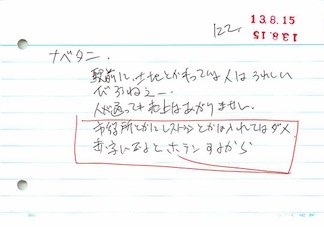 122.
13.8.15
13.8.15
ナベタニ.
駅前に土地とかもっている人はうれしい
でしょうねえー.
人が通っても売上はあがりません.
市役所とかにレストランとかは入れてはダメ
赤字になるとホテンするから